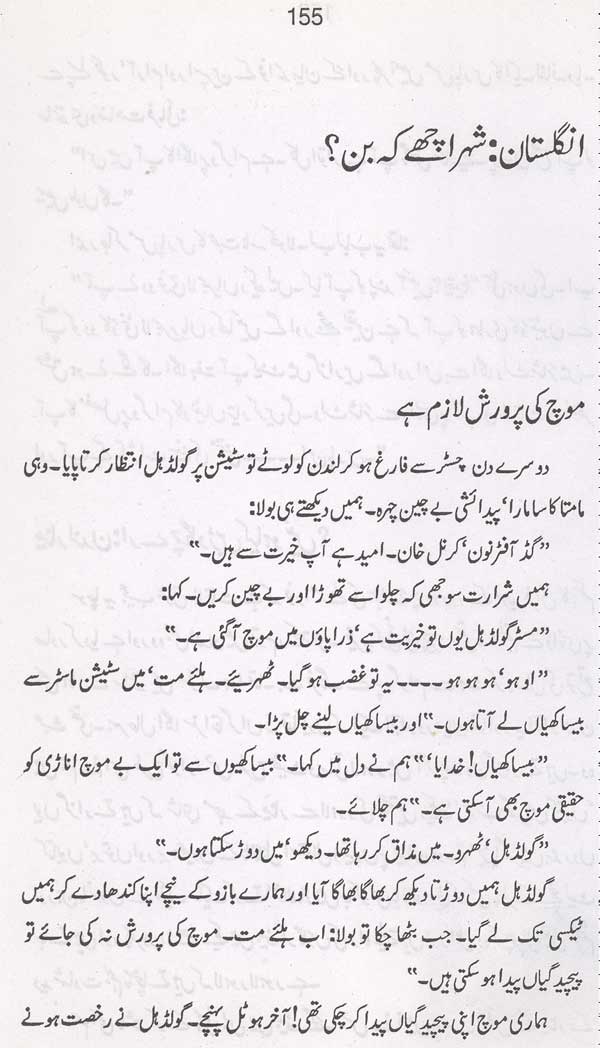 155
انگلستان: شہر اچھے کہ بن؟
موچ کی پرورش لازم ہے
دوسرے دن چسٹر سے فارغ ہو کر لندن کو لوٹے تو سٹیشن پر گولڈ ہل انتظار کرتا پایا۔ وہی
مامتا کا سا مارا، پیدائشی بے چین چہرہ۔ ہمیں دیکھتے ہی بولا:
"گڈ آفٹرنون، کرنل خان۔ امید ہے آپ خیرت سے ہیں۔"
ہمیں شرارت سوجھی کہ چلو اسے تھوڑا اور بے چین کریں۔ کہا:
"مسٹر گولڈ ہل یوں تو خیریت ہے، ذرا پاؤں میں موچ آ گئی ہے۔"
"او ہو، ہو ہو ہو ۔۔۔۔ یہ تو غضب ہو گیا۔ ٹھہریئے۔ ہلئے مت، میں سٹیشن ماسٹر سے
بیساکھیاں لے آتا ہوں۔" اور بیساکھیاں لینے چل پڑا۔
"بیساکھیاں! خدایا،" ہم نے دل میں کہا۔ "بیساکھیوں سے تو ایک بے موچ اناڑی کو
حقیقی موچ بھی آ سکتی ہے۔" ہم چلائے۔
"گولڈ ہل، ٹھہرو۔ میں مذاق کر رہا تھا۔ دیکھو، میں دوڑ سکتا ہوں۔"
گولڈ ہل ہمیں دوڑتا دیکھ کر بھاگا بھاگا آیا اور ہمارے بازو کے نیچے اپنا کندھا دے کر ہمیں
ٹیکسی تک لے گیا۔ جب بٹھا چکا تو بولا: اب ہلئے مت۔ موچ کی پرورش نہ کی جائے تو
پیچیدگیاں پیدا ہو سکتی ہیں۔"
ہماری موچ اپنی پیچیدگیاں پیدا کر چکی تھی! آخر ہوٹل پہنچے۔ گولڈ ہل نے رخصت ہونے